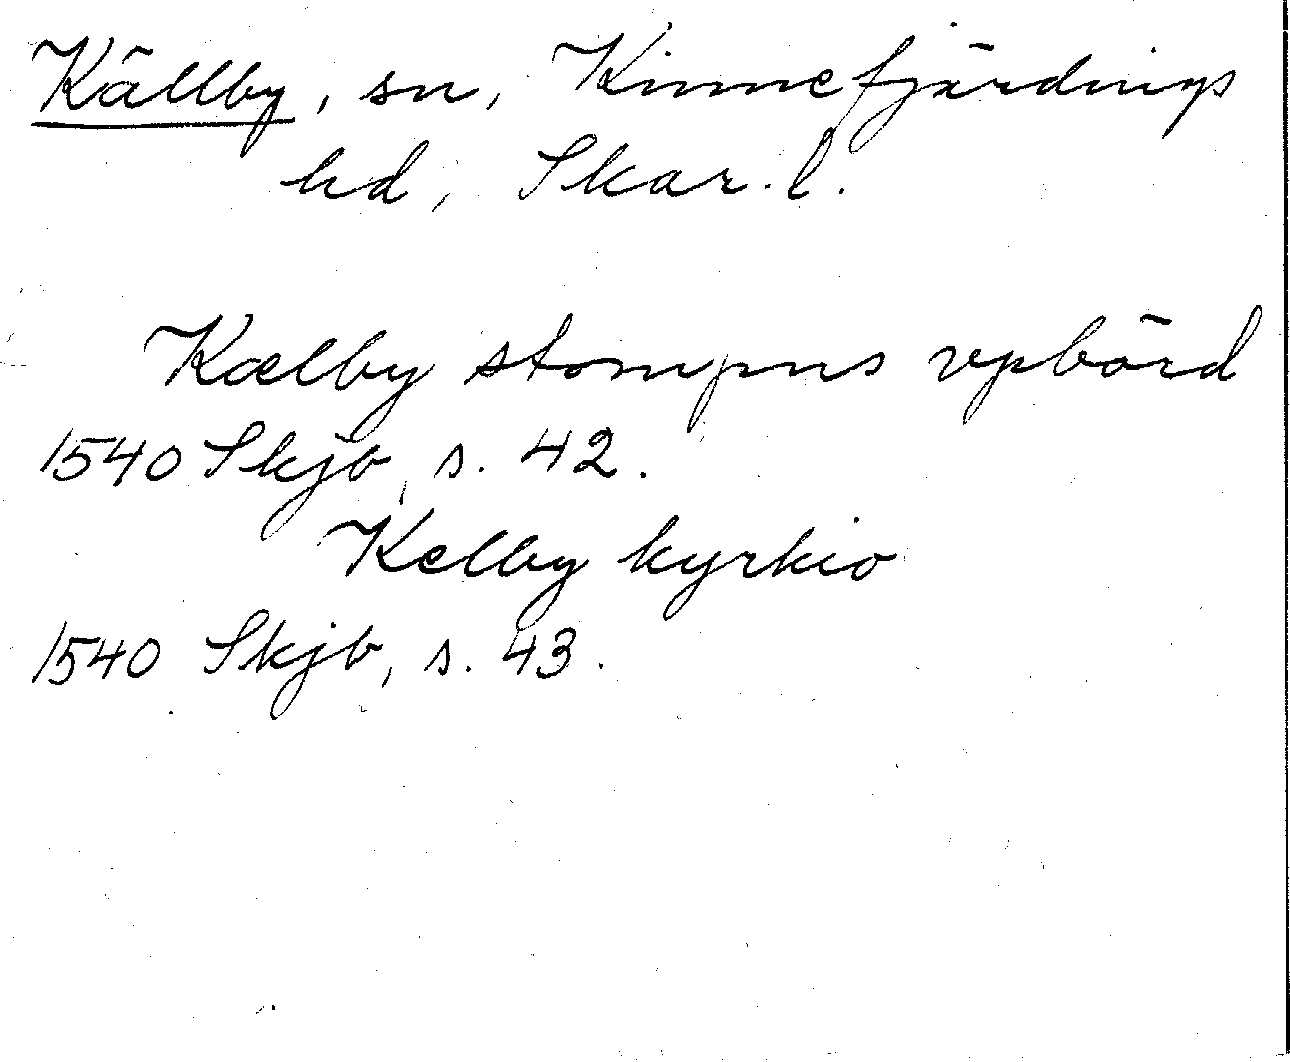 Källby, sn, Kinnefjärdings
hd, Skar. l.
Kælby stompns vpbörd
1540 Skjb, s. 42.
Kelby kyrkio
1540 Skjb, s. 43.